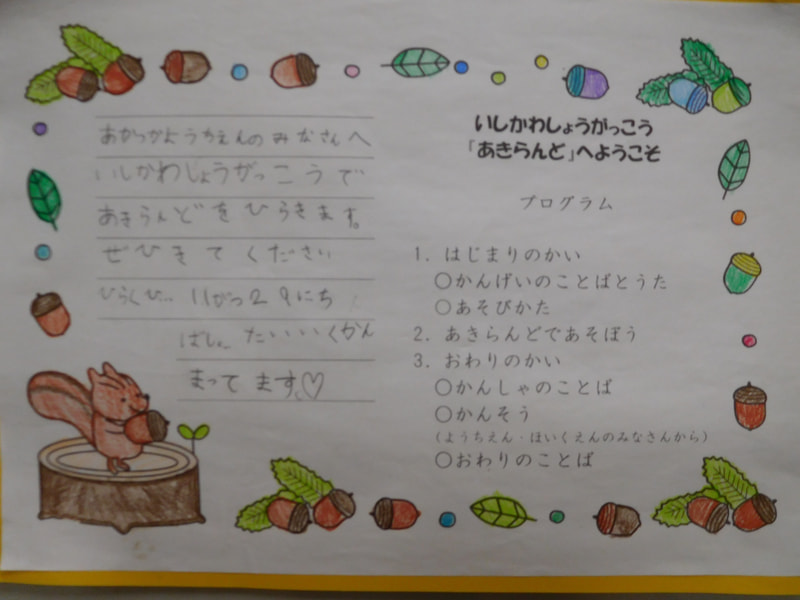 あかつかようちえんのみなさんへ
いしかわしょうがっこうで
あきらんどをひらきます。
ぜひきてください
ひらくひ… 11がつ29にち
ばしょ たいいくかん
まってます。♡
いしかわしょうがっこう
「あきらんど」へようこそ
プログラム
1. はじまりのかい
○かんげいのことばとうた
○あそびかた
2. あきらんどであそぼう
3. おわりのかい
○かんしゃのことば
○かんそう
(ようちえん・ほいくえんのみなさんから)
○おわりのことば